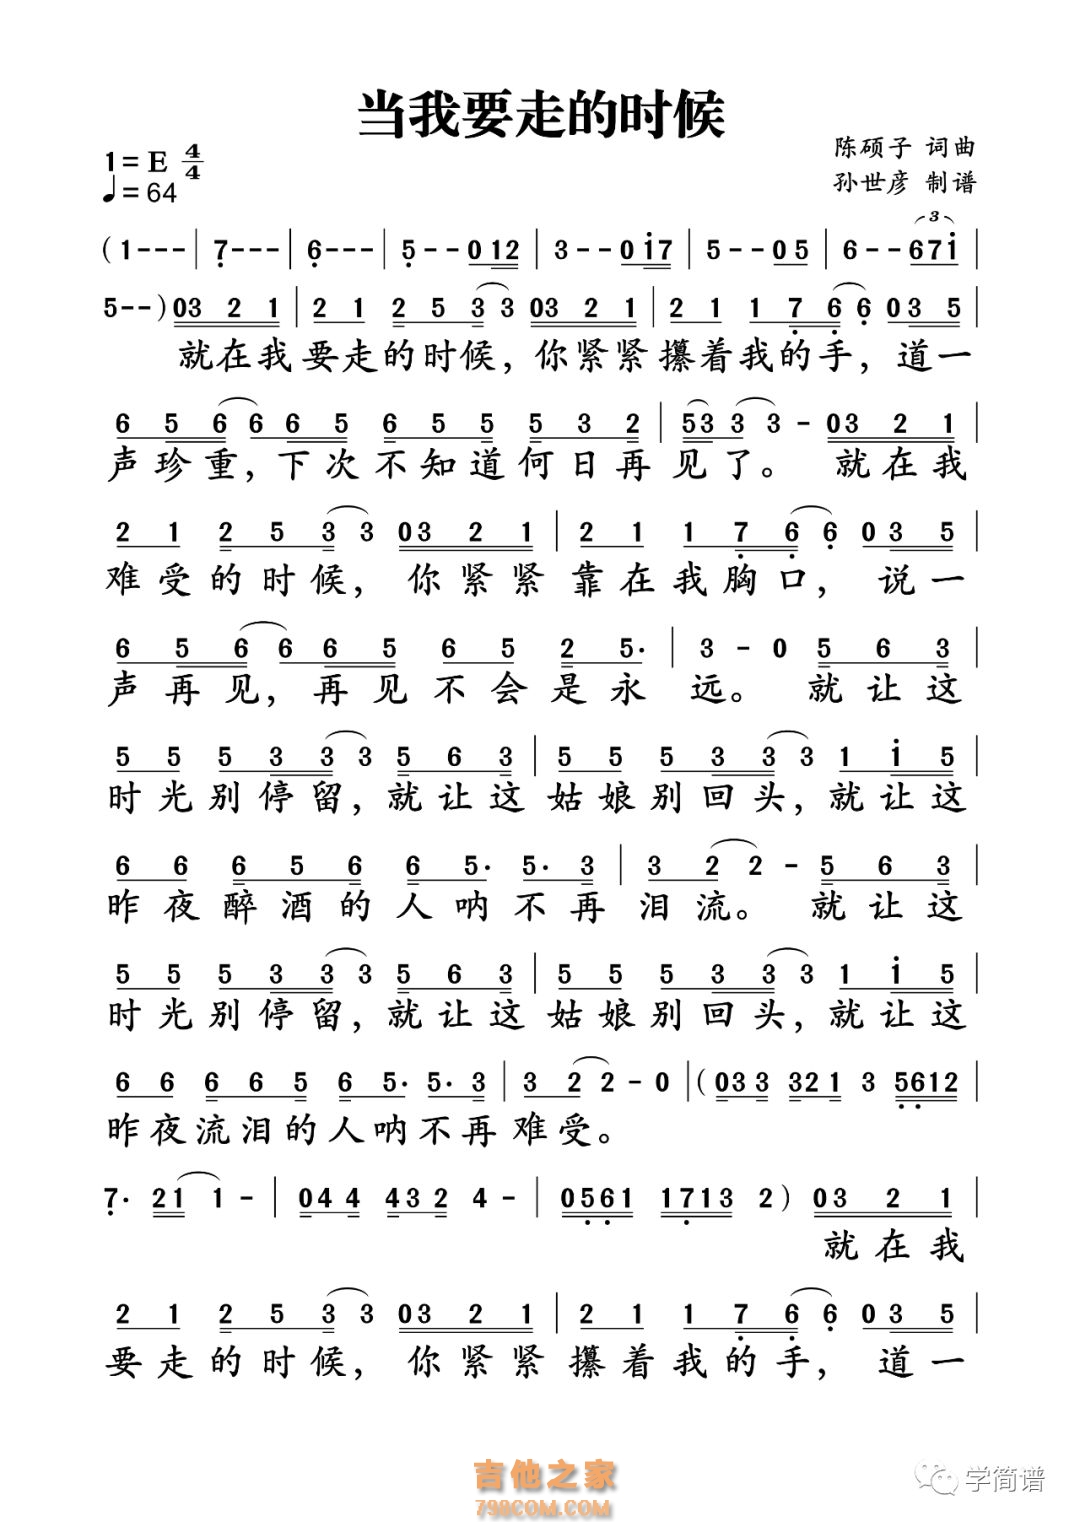 当我要走的时候
1=E 4/4
♩=64
陈硕子 词曲
孙世彦 制谱
3
(1--- | 7--- | 6--- | 5--012 | 3--0i7 | 5--05 | 6--67i |
5--)03 2 1 | 2 1 2 5 3 3 03 2 1 | 2 1 1 7 6 6 03 5 |
就在我要走的时候，你紧紧攥着我的手，道一
6 5 6 6 6 5 6 5 5 5 3 2 | 53 3 3 - 03 2 1 |
声珍重，下次不知道何日再见了。 就在我
2 1 2 5 3 3 03 2 1 | 2 1 1 7 6 6 03 5 |
难受的时候，你紧紧靠在我胸口，说一
6 5 6 6 6 5 6 5 2 5· | 3 - 0 5 6 3 |
声再见，再见不会是永远。 就让这
5 5 5 3 3 3 5 6 3 | 5 5 5 3 3 3 1 i 5 |
时光别停留，就让这姑娘别回头，就让这
6 6 6 5 6 6 5· 5· 3 | 3 2 2 - 5 6 3 |
昨夜醉酒的人呐不再泪流。 就让这
5 5 5 3 3 3 5 6 3 | 5 5 5 3 3 3 1 i 5 |
时光别停留，就让这姑娘别回头，就让这
6 6 6 6 5 6 5· 5· 3 | 3 2 2 - 0 | (033 321 3 5612 |
昨夜流泪的人呐不再难受。
7· 21 1 - | 044 432 4 - | 0561 1713 2) 03 2 1 |
就在我
2 1 2 5 3 3 03 2 1 | 2 1 1 7 6 6 03 5 |
要走的时候，你紧紧攥着我的手，道一
吉他之家
798COM.COM
学简谱